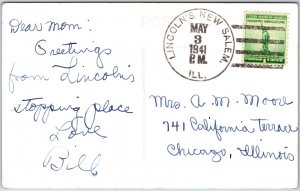 Dear Mom:
Greetings
from Lincoln's
stopping place
Love
Bill
LINCOLN'S NEW SALEM,
MAY
3
1941
P.M.
ILL.
Mrs. A. M. Moore
741 California Terrace
Chicago, Illinois